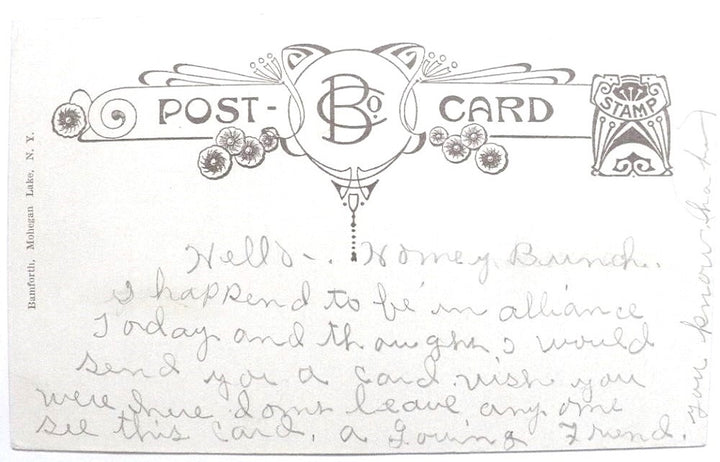 POST-
BCo.
CARD
STAMP
Bamforth, Mohegan Lake, N. Y.
Hello-. Homey Bunch.
I happend to be in alliance
Today and thought I would
send you a card. wish you
were here dont leave any one
see this card. a Loving Friend.
you know that